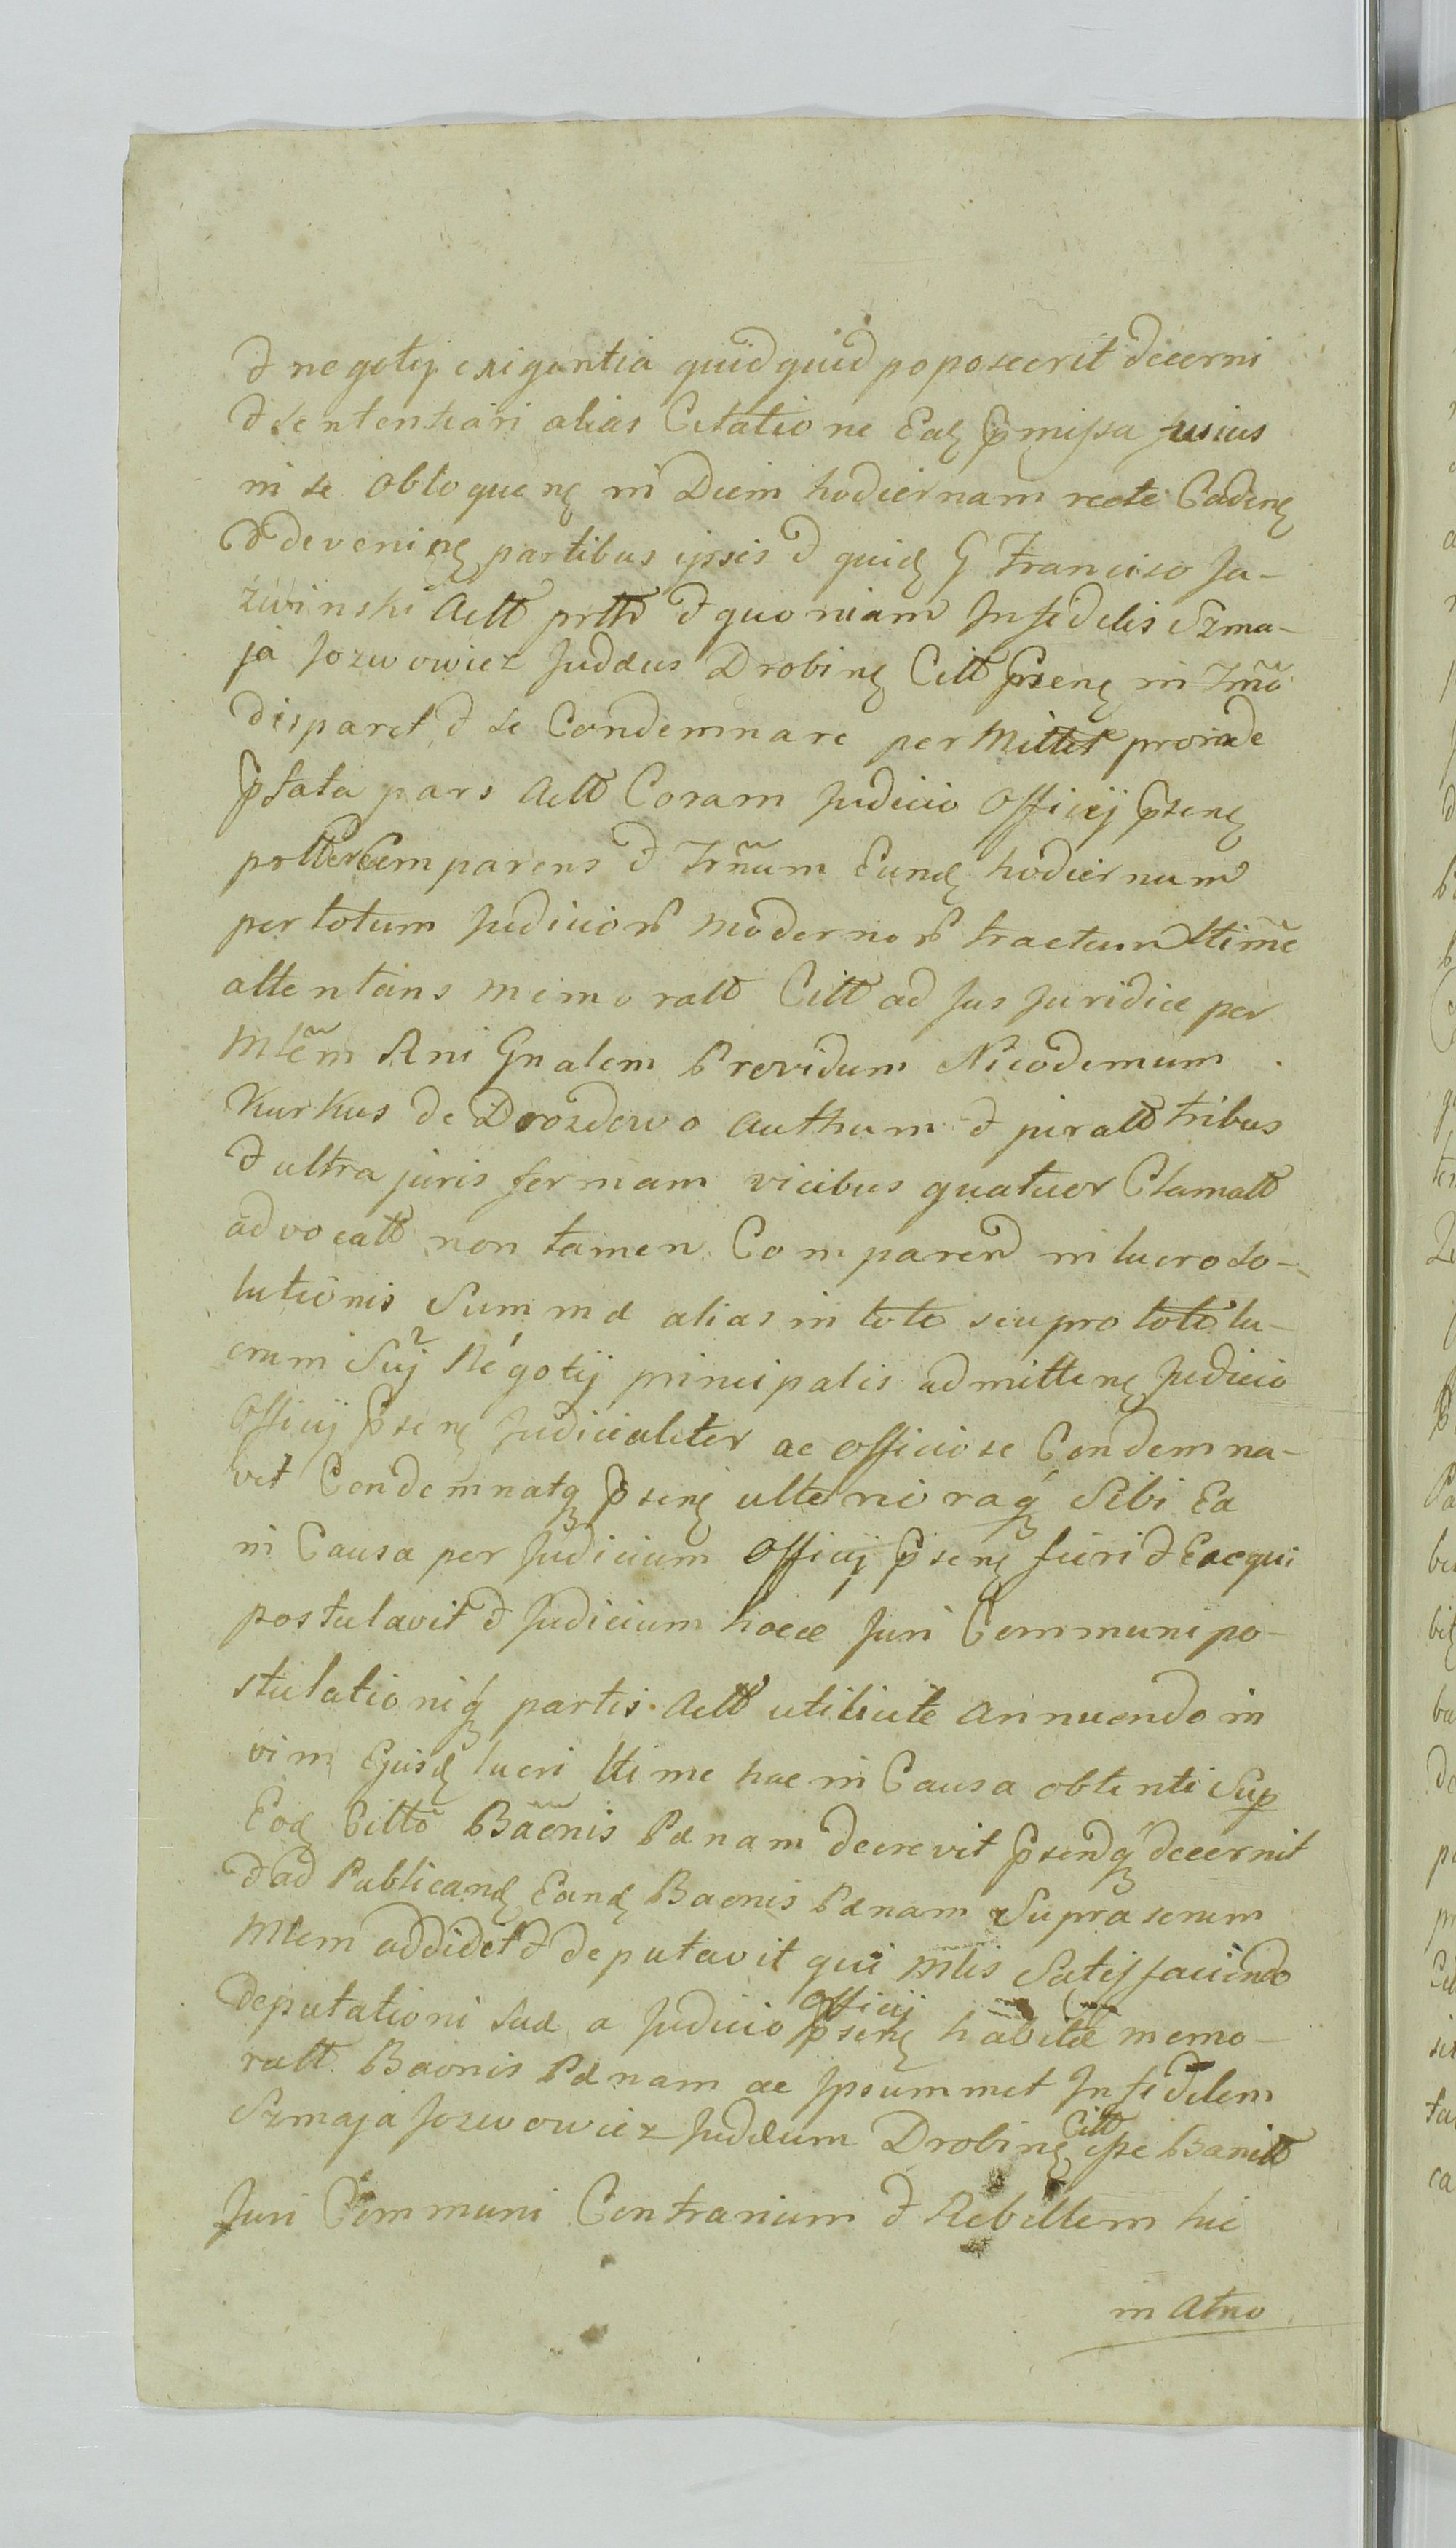 & negotij exigentia quidquid poposcerit decerni
& sententiari alias Citatione Eadꝫ Pmissa fusius
in se obloquenꝫ in Diem hodiernam recte Cadenꝫ
& devenienꝫ partibus ipsis & quidꝫ G Francisco Ja-
źwinski Actt prttt & quoniam Infidelis Szma-
ja Jozwowicz Judæus Drobinꝫ Citt Prsenꝫ in Tm̃o
disparet & se Condemnare permittit proinde
Pfata pars Actt Coram Judicio Officij Psenꝫ
prtter Comparens & Trm̃um Eundꝫ hodiernum
per totum Judicior modernor tractum ltim̃e
attentans memoratt Citt ad Jus Juridice per
Mlẽm Rni Gnalem Providum Nicodemum
Kurkus de Drozdowo Authum & juratt tribus
& ultra juris formam vicibus quatuor Clamatt
advocatt non tamen Comparen in lucro so-
lutionis Summæ alias in toto seu pro toto lu-
crum Suj Negotij principalis admittenꝫ Judicio
Officij Psenꝫ Judicialiter ac officiose Condemna-
vit Condemnatq Psenꝫ ulterioraq Sibi Ea
in Causa per Judicium Officij Psenꝫ fieri & Exequi
postulavit & Judicium hocce Juri Communi po-
stulationiq partis Actt utilite annuendo in
vim Ejusdꝫ lucri ltime hac in Causa obtenti Sup
Eodꝫ Citto Bãonis Pænam decrevit Psendq decernit
& ad Publicandꝫ Eandꝫ Baonis Pænam Suprascrum
Mlem addidit & deputavit qui Mlis Satisfaciendo
deputationi Suæ a Judicio Officij Psenꝫ habitæ memo-
ratt Baonis Pænam ac Ipsummet Infidelem
Szmaja Jozwowicz Judæum Drobinꝫ Citt esse Banitt
Juri Communi Contrarium & Rebellem hic
in Atno